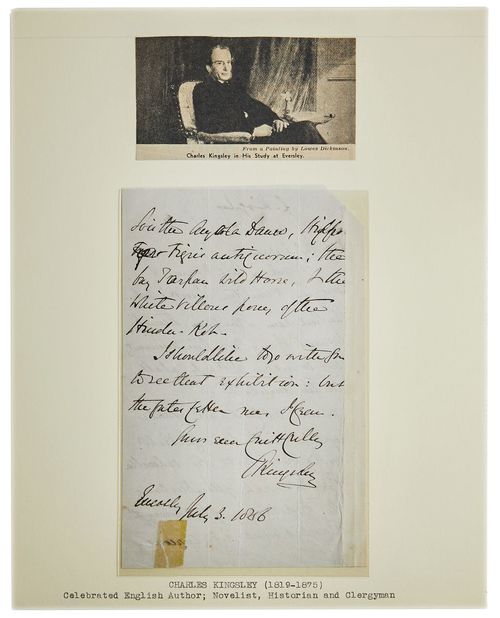 From a Painting by Lowes Dickinson.
Charles Kingsley in His Study at Eversley.
antiquorum; the
bay Tarpan wild Horse, & the
White villous pony of the
Hindu-Koh.
I should like to go with you
to see that exhibition: but
the fates fetter me, I
Yours ever faithfully
CKingsley
Eversley July 3. 1866
CHARLES KINGSLEY (1819-1875)
Celebrated English Author; Novelist, Historian and Clergyman